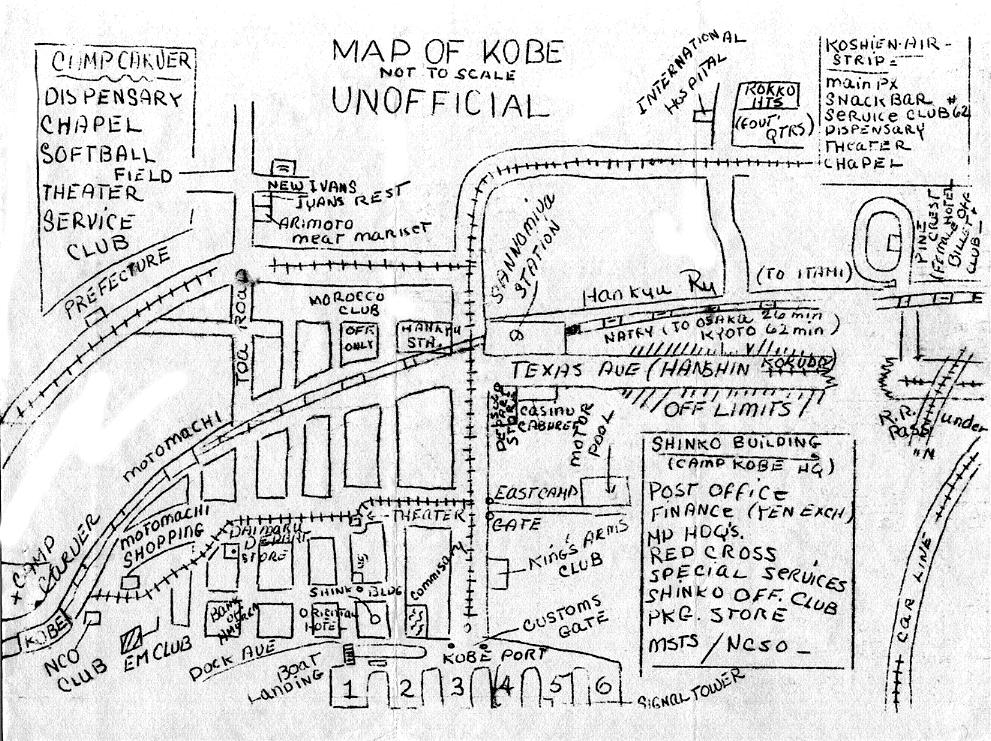 MAP OF KOBE
NOT TO SCALE
UNOFFICIAL
CAMP CARVER
DISPENSARY
CHAPEL
SOFTBALL
FIELD
THEATER
SERVICE
CLUB
PREFECTURE
NEW IVANS
IVANS REST
ARIMOTO
meat market
INTERNATIONAL
HOSPITAL
ROKKO
HTS
(GOVT'
QTRS)
KOSHIEN-AIR-
STRIP=
main Px
SNACK BAR
SERVICE CLUB #62
DISPENSARY
THEATER
CHAPEL
PINE
CREST
(FEMALE HOTEL
BILLET OFF
CLUB
SANNOMIYA
STATION
Hankyu Ry
(TO ITAMI)
TOA ROAD
MOROCCO
CLUB
OFF
ONLY
HANKYU
STA.
(TO OSAKA 26 min
KYOTO 62 min)
TEXAS AVE (HANSHIN KOKUDO)
OFF LIMITS
R.R.
Pass
under
"N"
DEPART
STORE
CASINO
CABARET
MOTOR
POOL
MOTOMACHI
MOTOMACHI
SHOPPING
EAST CAMP
GATE
THEATER
DAIMARU
DEPART
STORE
SHINKO BUILDING
(CAMP KOBE HQ)
POST OFFICE
FINANCE (YEN EXCH)
MP HDQ'S.
RED CROSS
SPECIAL SERVICES
SHINKO OFF. CLUB
PKG. STORE
MSTS / NCSO -
CAR LINE
KING'S ARMS
CLUB
Commissary
SHINKO BLDG
ORIENTAL
HOTEL
BANK
OF
CAMP
CARVER
KOBE
NCO
CLUB
EM CLUB
DOCK AVE
BOAT
Landing
CUSTOMS
GATE
KOBE PORT
1 2 3 4 5 6
SIGNAL TOWER